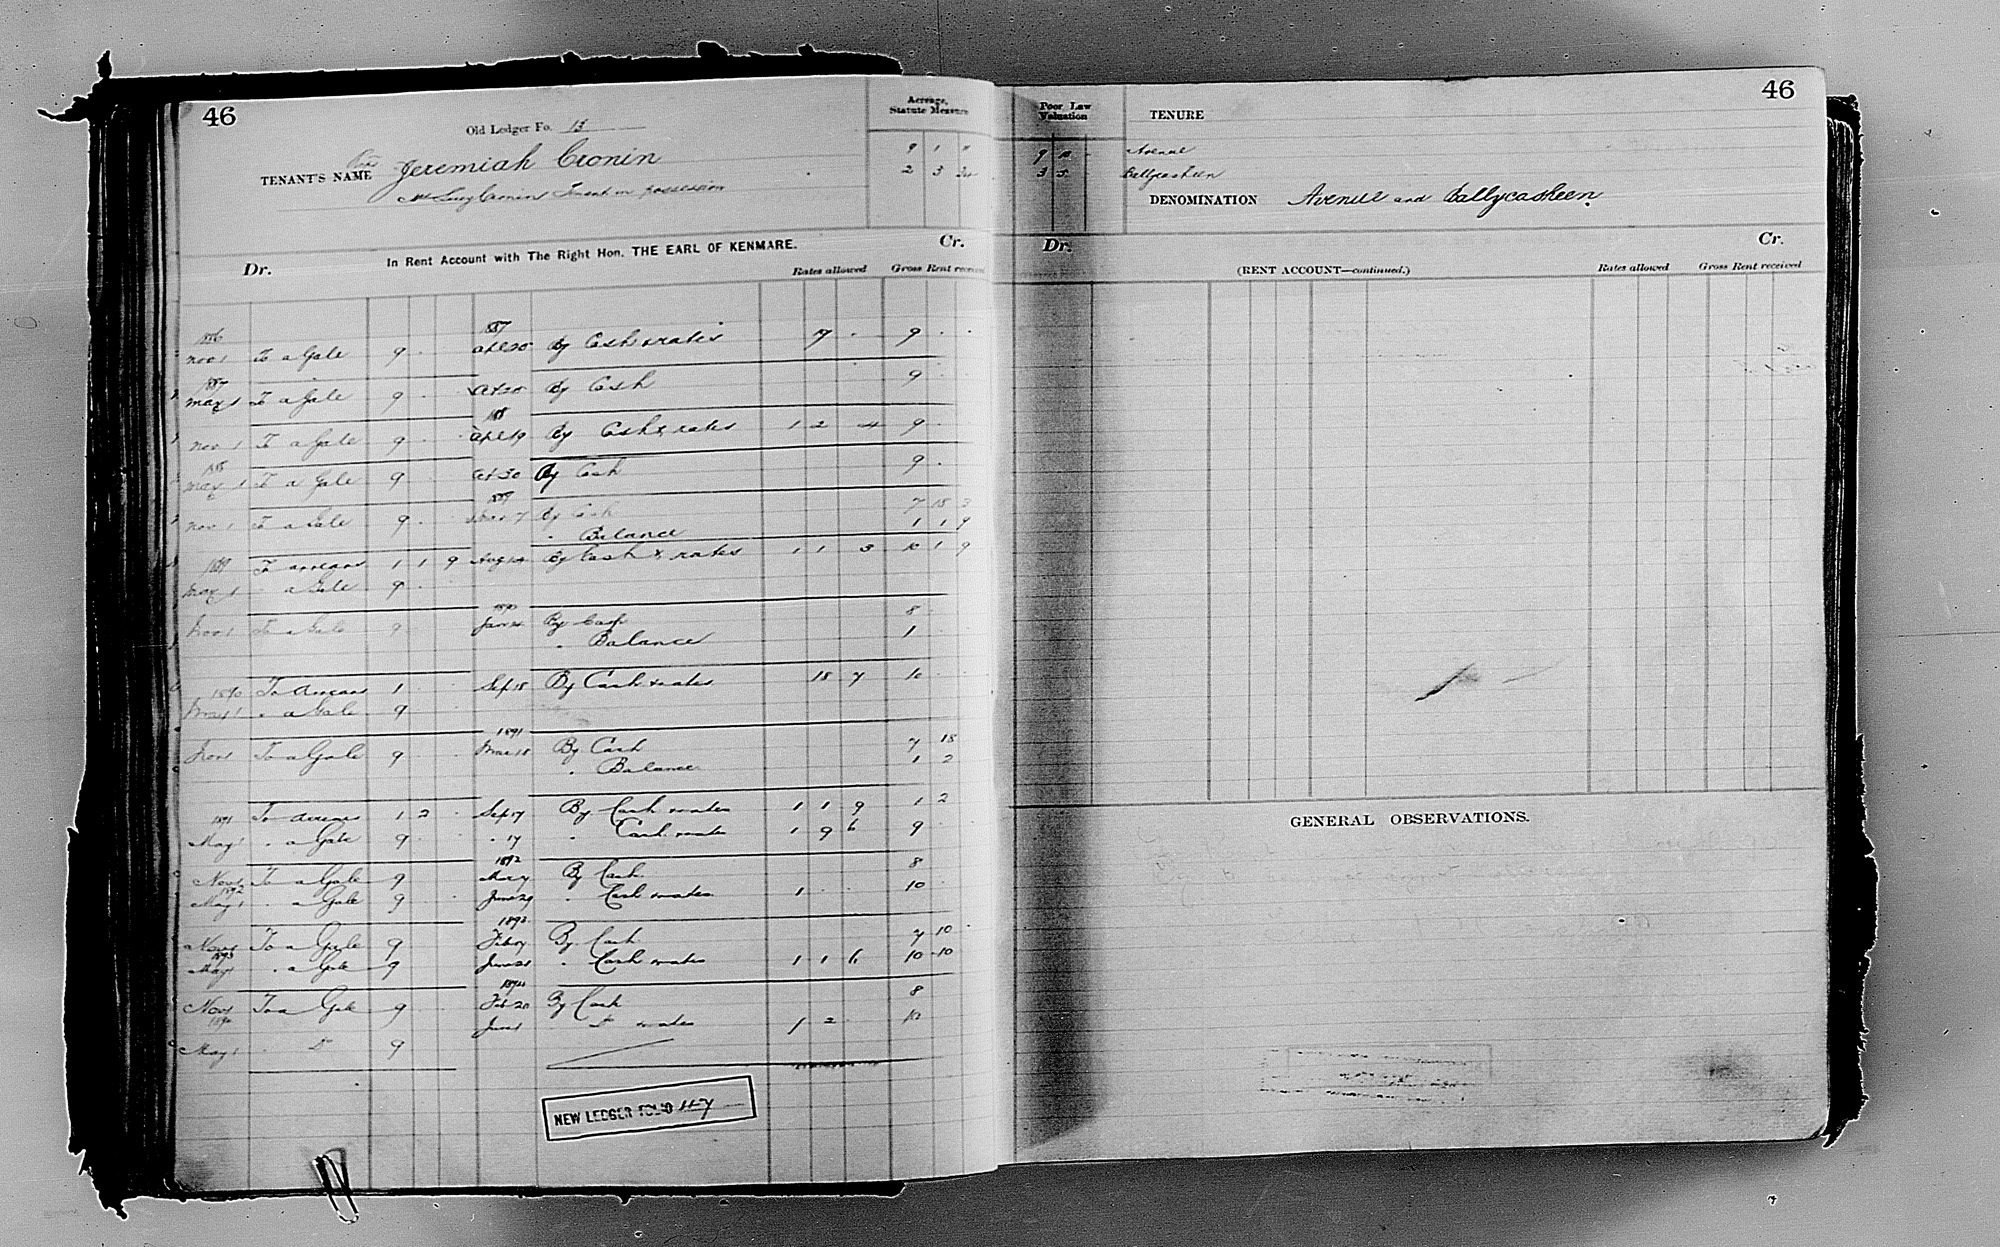 46
Old Ledger Fo. 13
Acreage, Statute Measure
TENANT'S NAME Jeremiah Cronin
9 1 "
2 3
Lucy Cronin Tenant in possession
In Rent Account with The Right Hon. THE EARL OF KENMARE.
Dr. Cr.
Rates allowed Gross Rent received
1886 1887
Nov 1 To a Gale 9 . . Apl 20 By Cash & rates 17 . 9 . .
1887
May 1 To a Gale 9 . . Oct 20 By Cash 9 . .
1888
Nov 1 To a Gale 9 . . Apl 19 By Cash & rates 1 2 4 9 .
1888
May 1 To a Gale 9 . . Oct 30 By Cash 9 .
1889
Nov 1 To a Gale 9 . . By Cash 7 18 3
" Balance 1 1 9
1889 To arrears 1 1 9 Aug 14 By Cash & rates 1 1 3 10 1 9
May 1 " a Gale 9 . .
1890
Nov 1 To a Gale 9 By Cash 8 .
" Balance 1 .
1890 To Arrears 1 . . Sep 18 By Cash & rates 18 7 10
May 1 " a Gale 9
1891
Nov 1 To a Gale 9 Mar 18 By Cash 7 18
" Balance 1 2
1891 To Arrears 1 2 . Sep 17 By Cash & rates 1 1 9 1 2
May 1 " a Gale 9 " 17 " Cash & rates 1 9 6 9
1892
Nov 1 To a Gale 9 May By Cash 8
1892
May 1 " a Gale 9 June 29 " Cash & rates 1 . . 10
1893
Nov 1 To a Gale 9 Feb By Cash 7 10 .
1893
May 1 " a Gale 9 June 21 " Cash & rates 1 1 6 10 10
1894
Nov 1 To a Gale 9 Feb 20 By Cash 8
1894
June 1 " Do & rates 1 2 10
May 1 " Do 9
NEW LEDGER FOLIO 117
46
Poor Law Valuation
TENURE
9 10 - Avenue
3 5 - Ballycasheen
DENOMINATION Avenue and Ballycasheen
Dr. Cr.
(RENT ACCOUNT—continued.)
Rates allowed Gross Rent received
GENERAL OBSERVATIONS.